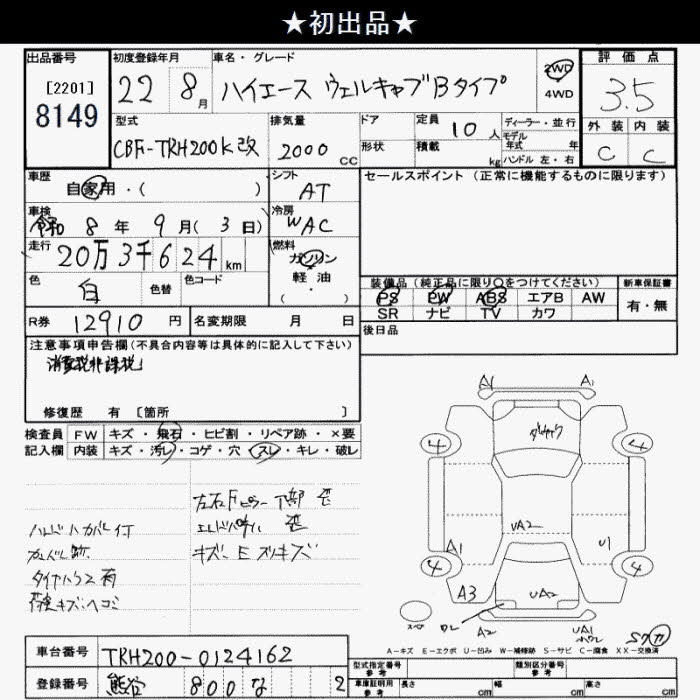 ★初出品★
出品番号 初度登録年月 車名・グレード 評価点
[2201]
8149
22 8月 ハイエース ウェルキャブBタイプ 2WD 4WD 3.5
型式 排気量 ドア 定員 ディーラー・並行 外装 内装
CBF-TRH200K改 2000 CC 形状 10人 積載 kg モデル年式 年 ハンドル 左・右 C C
車歴 シフト セールスポイント (正常に機能するものに限ります)
自家用・( ) AT
車検 冷房
令和 8年 9月(3日) WAC
走行 燃料
20万3千624km ガソリン
軽油
( )
色 色替 色コード
白
装備品(純正品に限り○をつけてください) 新車保証書
PS PW ABS エアB AW 有・無
SR ナビ TV カワ
R券 12910円 名変期限 月 日 後日品
注意事項申告欄(不具合内容等は具体的に記入して下さい)
消費税非課税
修復歴 有 [箇所 ]
検査員 FW キズ・飛石・ヒビ割・リペア跡・×要
記入欄 内装 キズ・汚レ・コゲ・穴・スレ・キレ・破レ
左右Fピラー下部 歪
ハンドルカバー付
キズ・E
タイヤハウス有
荷室キズ・ヘコミ
A1 A1
4 4
UA2
A1 U1
4 4
A3 UA2
A2 UA1
A-キズ E-エクボ U-凹み W-補修跡 S-サビ C-腐食 XX-交換済
車台番号 TRH200-0124162
登録番号 熊谷 800 な 2
型式指定番号 参考 類別区分番号 参考
車庫証明用 参考 長さ cm 幅 cm 高さ cm